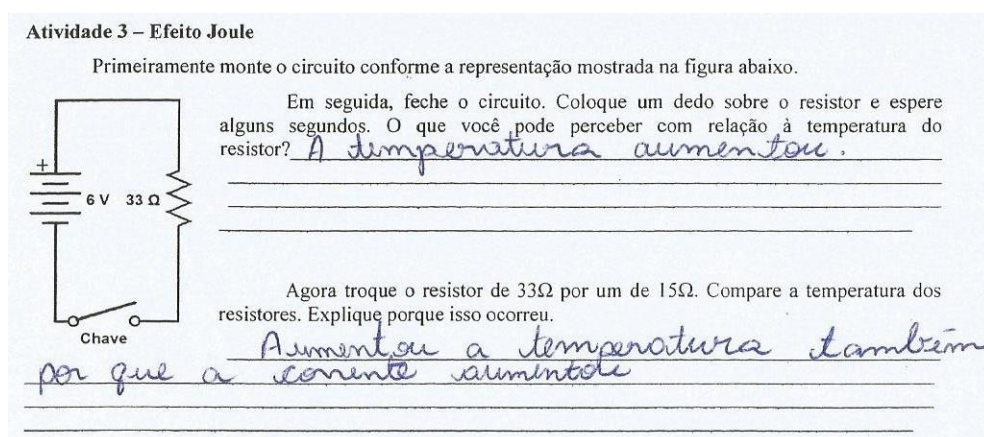 Atividade 3 – Efeito Joule
Primeiramente monte o circuito conforme a representação mostrada na figura abaixo.
Em seguida, feche o circuito. Coloque um dedo sobre o resistor e espere
alguns segundos. O que você pode perceber com relação à temperatura do
resistor? A temperatura aumentou.
+
6 V 33 Ω
Chave
Agora troque o resistor de 33Ω por um de 15Ω. Compare a temperatura dos
resistores. Explique porque isso ocorreu.
Aumentou a temperatura também
por que a corrente aumentou